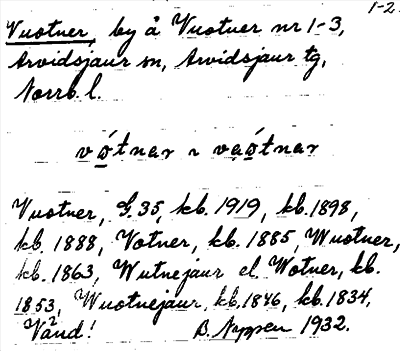 1-2.
Vuotner, by å Vuotner nr 1-3,
Arvidsjaur sn, Arvidsjaur tg,
Norrb. l.
vọ́tnar ~ vạọ́tnar
Vuotner, G. 35, kb. 1919, kb. 1898,
kb. 1888, Votner, kb. 1885, Wuotner,
kb. 1863, Wutnejaur el. Wotner, kb.
1853, Wuotnejaur, kb. 1846, kb. 1834,
Vand! B. 1932.